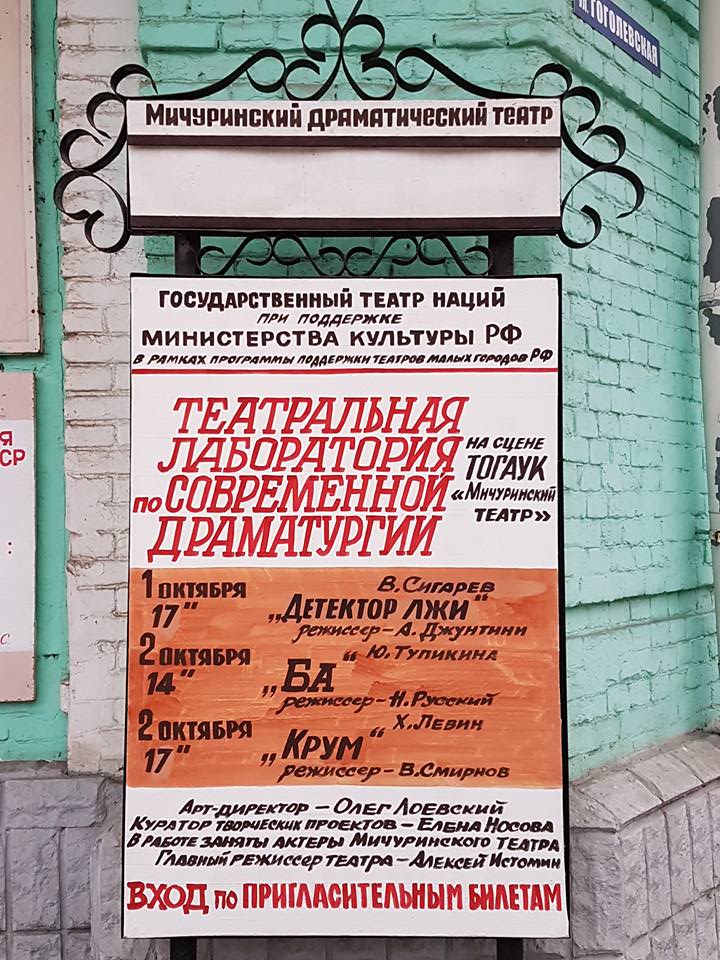 Л. ГОГОЛЕВСКАЯ
МИЧУРИНСКИЙ ДРАМАТИЧЕСКИЙ ТЕАТР
ГОСУДАРСТВЕННЫЙ ТЕАТР НАЦИЙ
ПРИ ПОДДЕРЖКЕ
МИНИСТЕРСТВА КУЛЬТУРЫ РФ
В РАМКАХ ПРОГРАММЫ ПОДДЕРЖКИ ТЕАТРОВ МАЛЫХ ГОРОДОВ РФ
ТЕАТРАЛЬНАЯ
ЛАБОРАТОРИЯ
ПО СОВРЕМЕННОЙ
ДРАМАТУРГИИ
НА СЦЕНЕ
ТОГАУК
«МИЧУРИНСКИЙ
ТЕАТР»
1 ОКТЯБРЯ В. СИГАРЕВ
17" „ДЕТЕКТОР ЛЖИ"
РЕЖИССЕР – А. ДЖУНТИНИ
2 ОКТЯБРЯ Ю. ТУПИКИНА
14" „БА"
РЕЖИССЕР – Н. РУССКИЙ
2 ОКТЯБРЯ Х. ЛЕВИН
17" „КРУМ"
РЕЖИССЕР – В. СМИРНОВ
АРТ-ДИРЕКТОР – ОЛЕГ ЛОЕВСКИЙ
КУРАТОР ТВОРЧЕСКИХ ПРОЕКТОВ – ЕЛЕНА НОСОВА
В РАБОТЕ ЗАНЯТЫ АКТЕРЫ МИЧУРИНСКОГО ТЕАТРА
ГЛАВНЫЙ РЕЖИССЕР ТЕАТРА – АЛЕКСЕЙ ИСТОМИН
ВХОД ПО ПРИГЛАСИТЕЛЬНЫМ БИЛЕТАМ
Я
СР
:
С